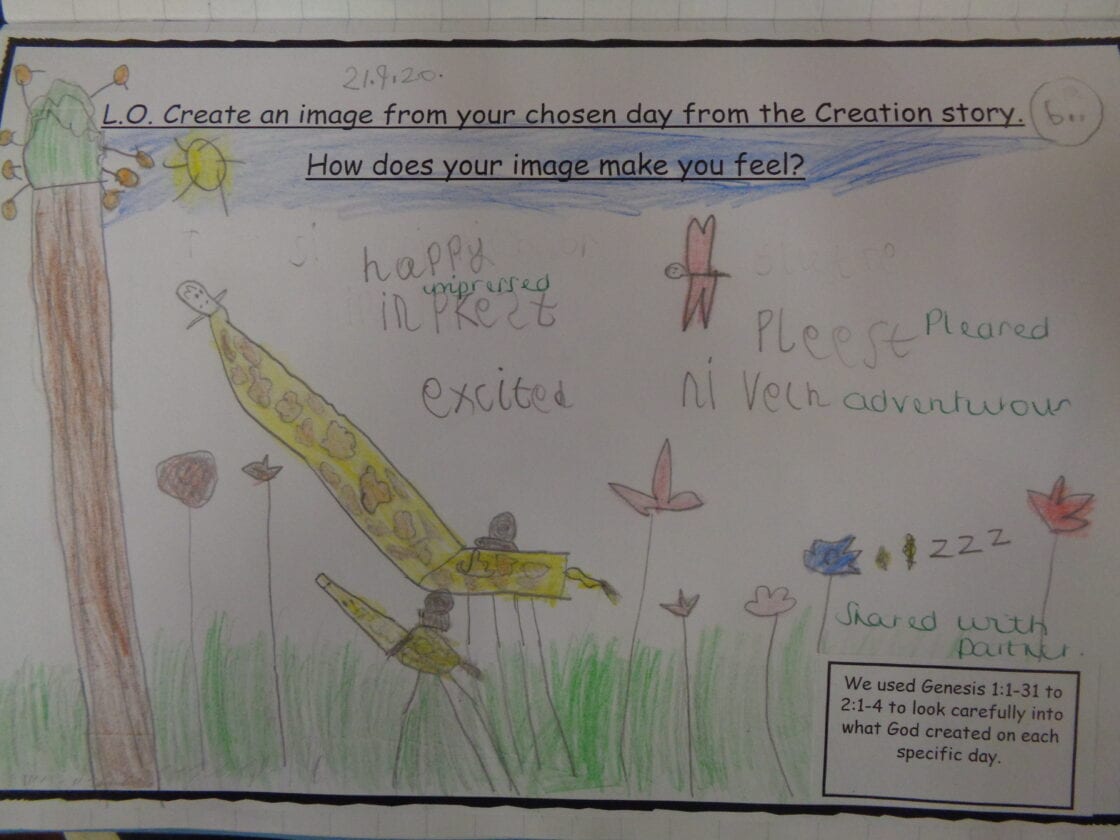 21.9.20.
L.O. Create an image from your chosen day from the Creation story.
6..
How does your image make you feel?
happy
impressed
inpkest
Pleest Pleared
excited
ni Vech adventurour
zzz
Shared with
partner.
We used Genesis 1:1-31 to
2:1-4 to look carefully into
what God created on each
specific day.